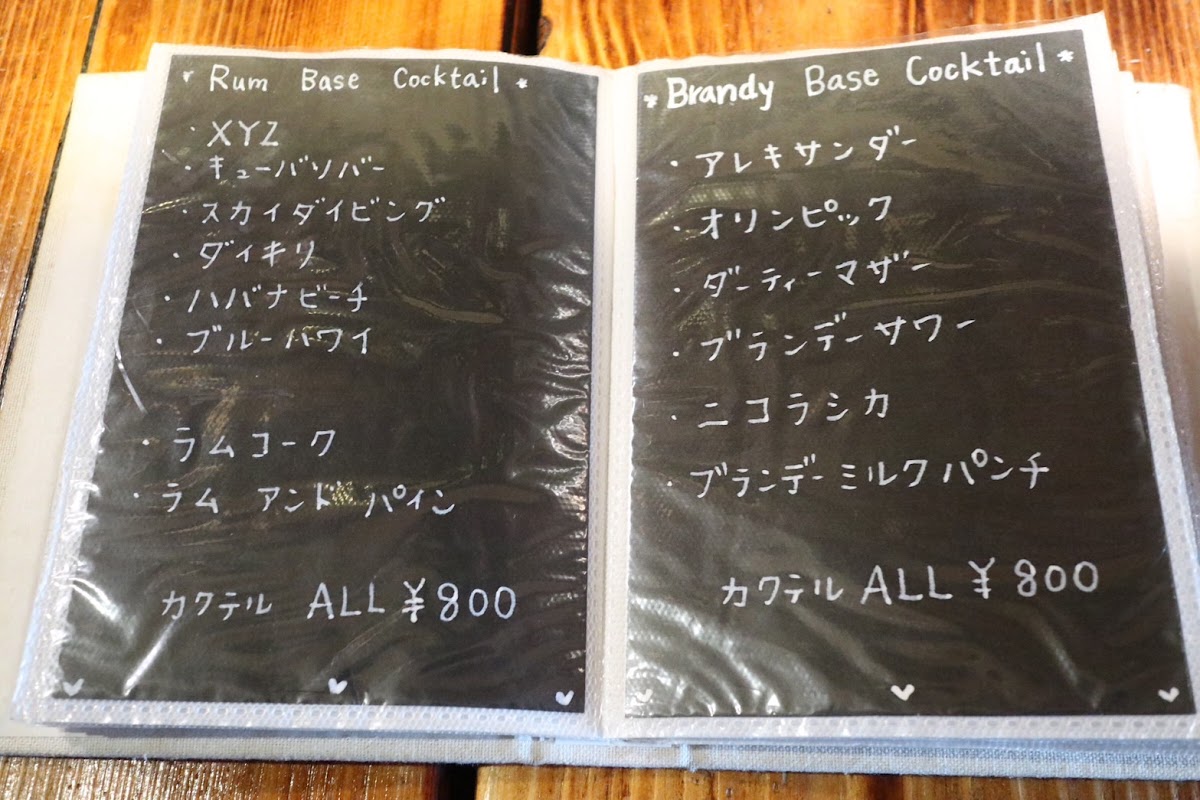 * Rum Base Cocktail *
・XYZ
・キューバリバー
・スカイダイビング
・ダイキリ
・ハバナビーチ
・ブルーハワイ
・ラムコーク
・ラム アンド パイン
カクテル ALL ¥800
* Brandy Base Cocktail *
・アレキサンダー
・オリンピック
・ダーティーマザー
・ブランデーサワー
・ニコラシカ
・ブランデーミルクパンチ
カクテル ALL ¥800